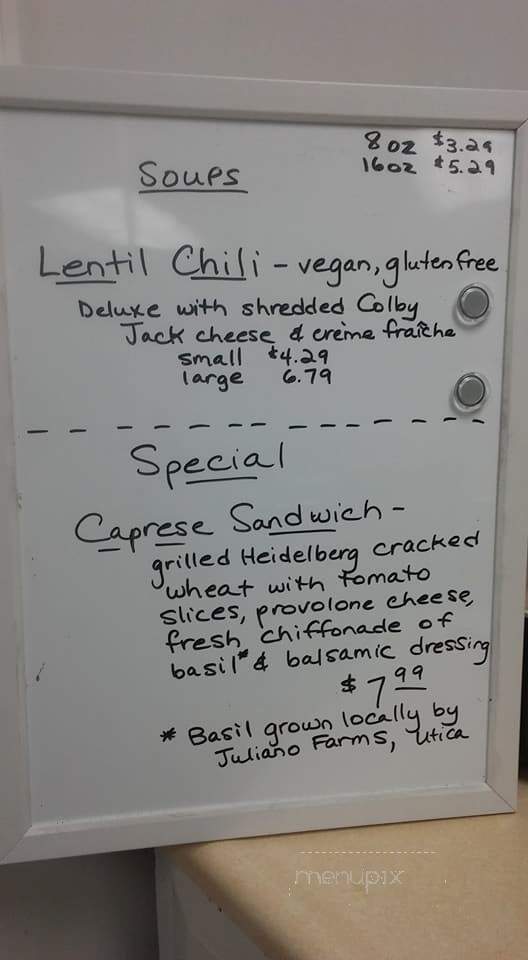 8oz $3.29
16oz $5.29
Soups
Lentil Chili - vegan, gluten free
Deluxe with shredded Colby
Jack cheese & crème fraîche
small $4.29
large 6.79
Special
Caprese Sandwich -
grilled Heidelberg cracked
wheat with tomato
slices, provolone cheese,
fresh chiffonade of
basil* & balsamic dressing
$7.99
* Basil grown locally by
Juliano Farms, Utica
menupix